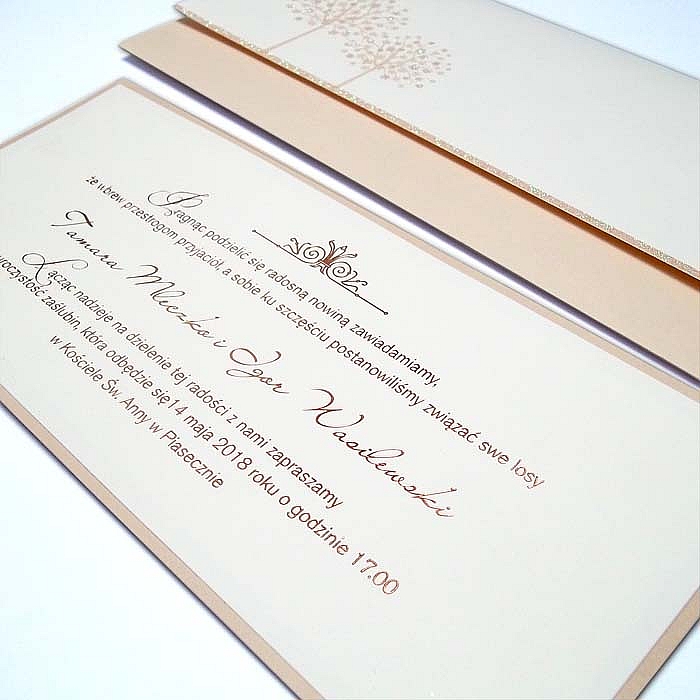 Pragnąc podzielić się radosną nowiną zawiadamiamy,
że wbrew przestrogom przyjaciół, a sobie ku szczęściu postanowiliśmy związać swe losy
Tamara Mleczko i Igor Wasilewski
Łącząc nadzieje na dzielenie tej radości z nami zapraszamy
uroczystość zaślubin, która odbędzie się14 maja 2018 roku o godzinie 17.00
w Kościele Św. Anny w Piasecznie